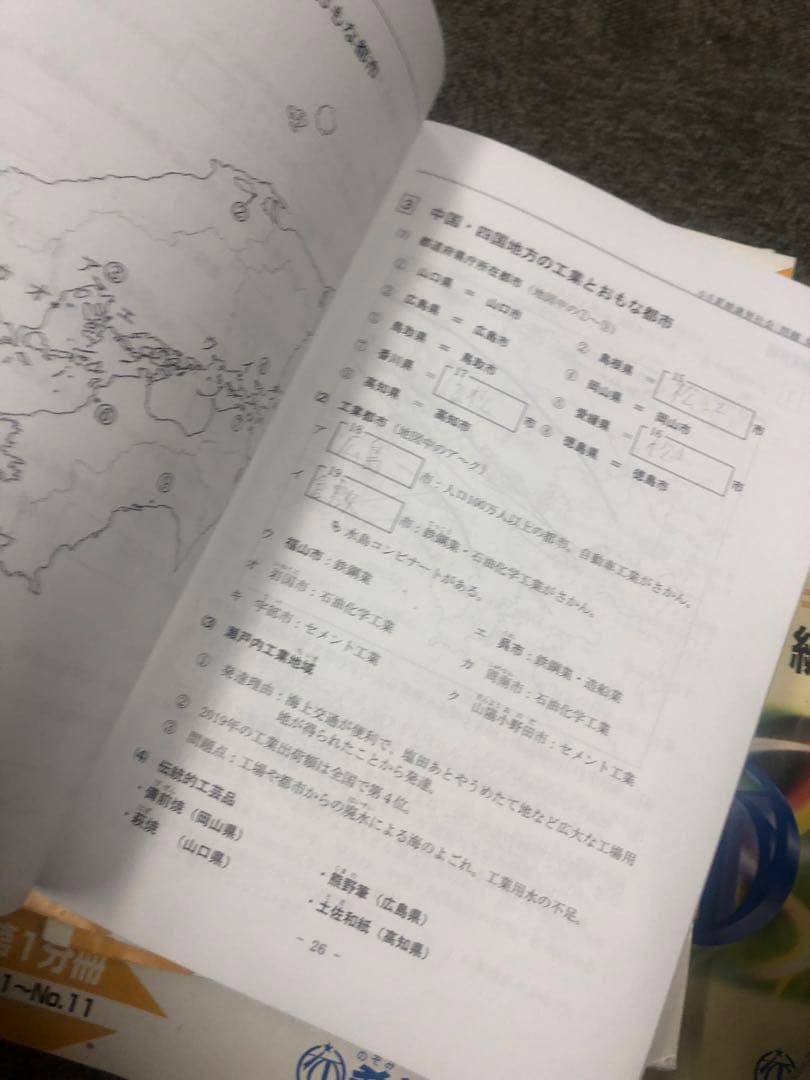 おもな都市
③ 中国・四国地方の工業とおもな都市
(1) 都道府県庁所在都市（地図中の①～⑨）
① 山口県 ＝ 山口市
② 島根県 ＝ 15 松江 市
③ 広島県 ＝ 広島市
④ 岡山県 ＝ 岡山市
⑤ 鳥取県 ＝ 鳥取市
⑥ 愛媛県 ＝ 16 松山 市
⑦ 香川県 ＝ 17 高松 市
⑧ 徳島県 ＝ 徳島市
⑨ 高知県 ＝ 高知市
(2) 工業都市（地図中のア～ク）
ア 18 広島 市：人口100万人以上の都市。自動車工業がさかん。
イ 19 倉敷 市：鉄鋼業・石油化学工業がさかん。
水島コンビナートがある。
ウ 福山市：鉄鋼業
エ 呉市：鉄鋼業・造船業
オ 岩国市：石油化学工業
カ 周南市：石油化学工業
キ 宇部市：セメント工業
ク 山陽小野田市：セメント工業
(3) 瀬戸内工業地域
① 発達理由：海上交通が便利で、塩田あとやうめたて地など広大な工場用
地が得られたことから発達。
② 2019年の工業出荷額は全国で第4位。
③ 問題点：工場や都市からの廃水による海のよごれ。工業用水の不足。
(4) 伝統的工芸品
・備前焼（岡山県）
・熊野筆（広島県）
・萩焼（山口県）
・土佐和紙（高知県）
－ 26 －
第1分冊
1～No.11
のぞみ